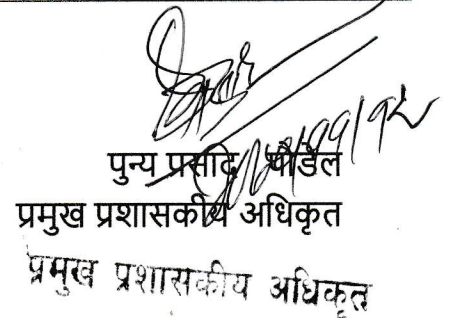 पुन्य प्रसाद पौडेल
प्रमुख प्रशासकीय अधिकृत
प्रमुख प्रशासकीय अधिकृत